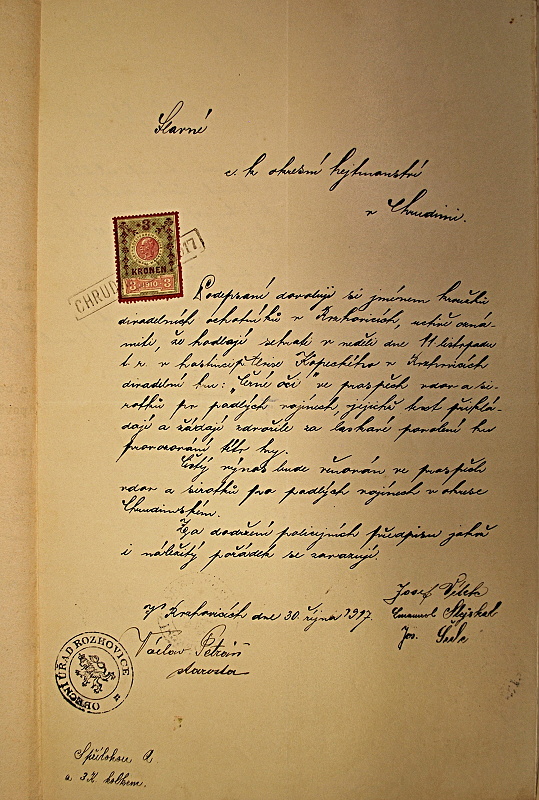 Slavné
c. k. okresní hejtmanství
v Chrudimi.
3
KRONEN
3 1910 3
CHRUD 17
Podepsaní dovolují si jménem kroužku
divadelních ochotníků v Rozhovicích, uctivě ozná-
miti, že hodlají sehrati v neděli dne 11 listopadu
t. r. v hostinci p. Aloise Kopeckého v Rozhovicích
divadelní hru: „Černé oči" ve prospěch vdov a si-
rotků po padlých vojínech, jejichž text přiklá-
dají a žádají zdvořile za laskavé povolení ku
provozování této hry.
Čistý výnos bude věnován ve prospěch
vdov a sirotků po padlých vojínech v okrese
Chrudimském.
Za dodržení policejních předpisů jakož
i náležitý pořádek se zavazují.
V Rozhovicích dne 30. října 1917.
Josef
Emanuel Stýskal
Jos.
Václav Petráň
starosta
OBECNÍ ÚŘAD ROZHOVICE
a 3 K. kolkem.